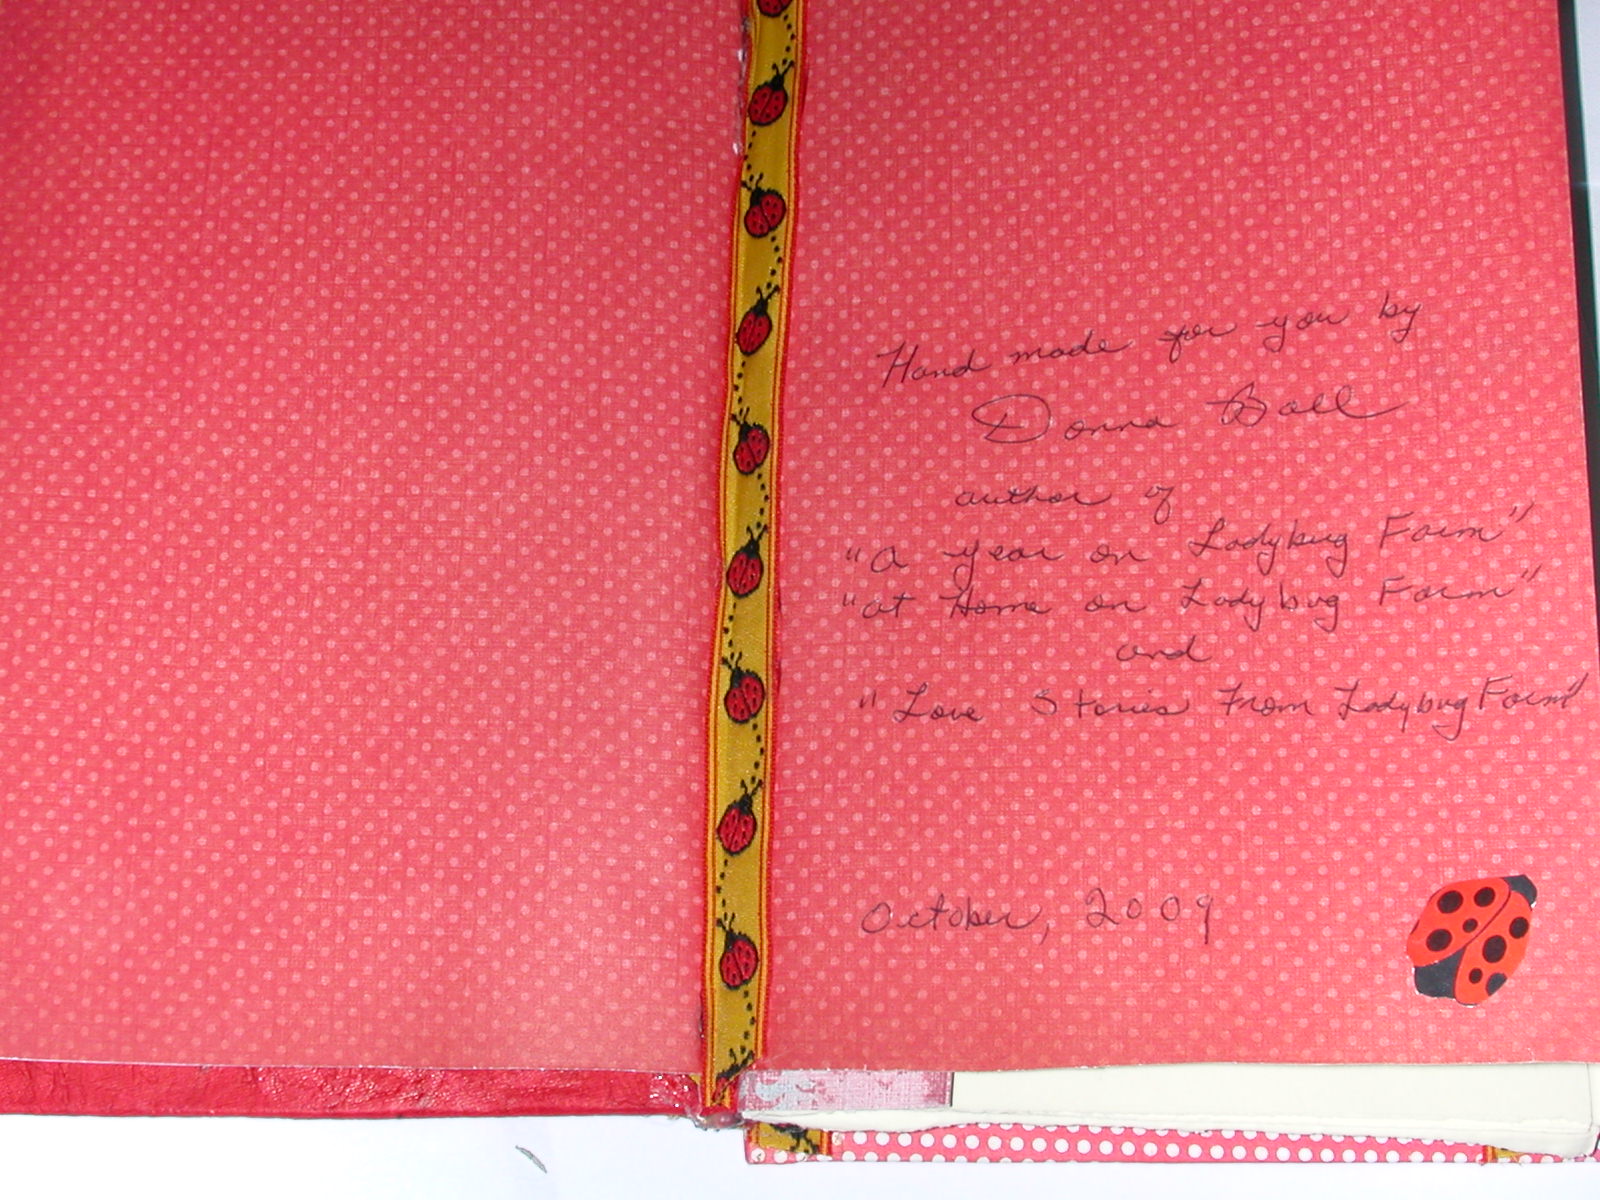 Hand made for you by
Donna Ball
author of
"A Year on Ladybug Farm"
"At Home on Ladybug Farm"
and
"Love Stories From Ladybug Farm"
October, 2009